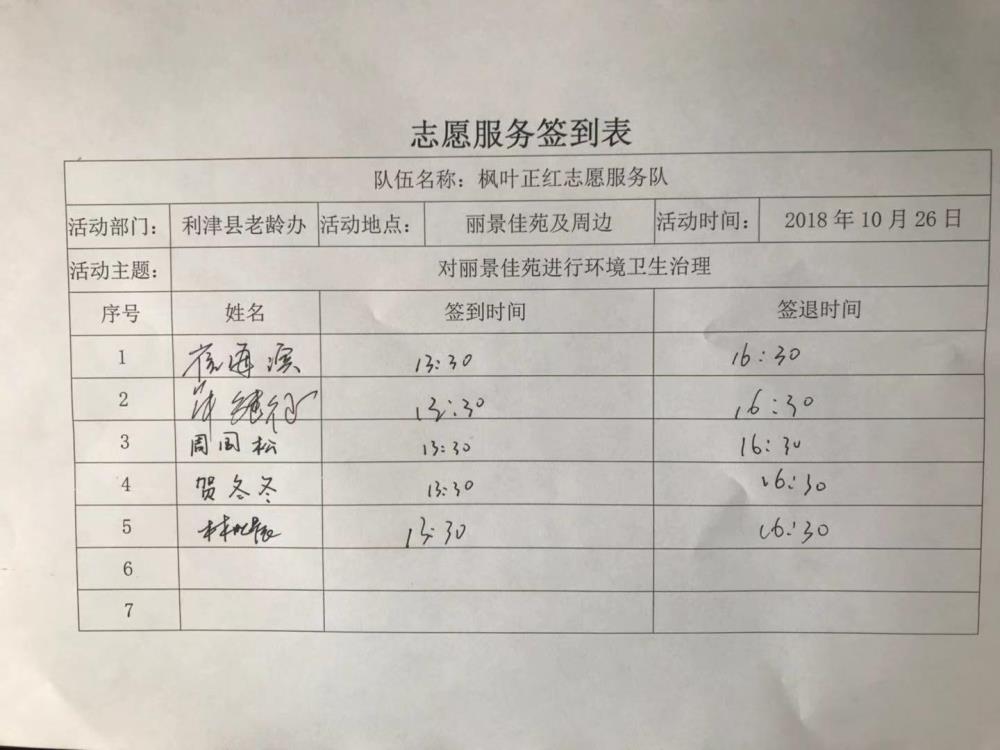 志愿服务签到表
队伍名称：枫叶正红志愿服务队
活动部门： 利津县老龄办 活动地点： 丽景佳苑及周边 活动时间： 2018年10月26日
活动主题： 对丽景佳苑进行环境卫生治理
序号 姓名 签到时间 签退时间
1 海滨 13:30 16:30
2 13:30 16:30
3 周国松 13:30 16:30
4 贺冬冬 13:30 16:30
5 13:30 16:30
6
7